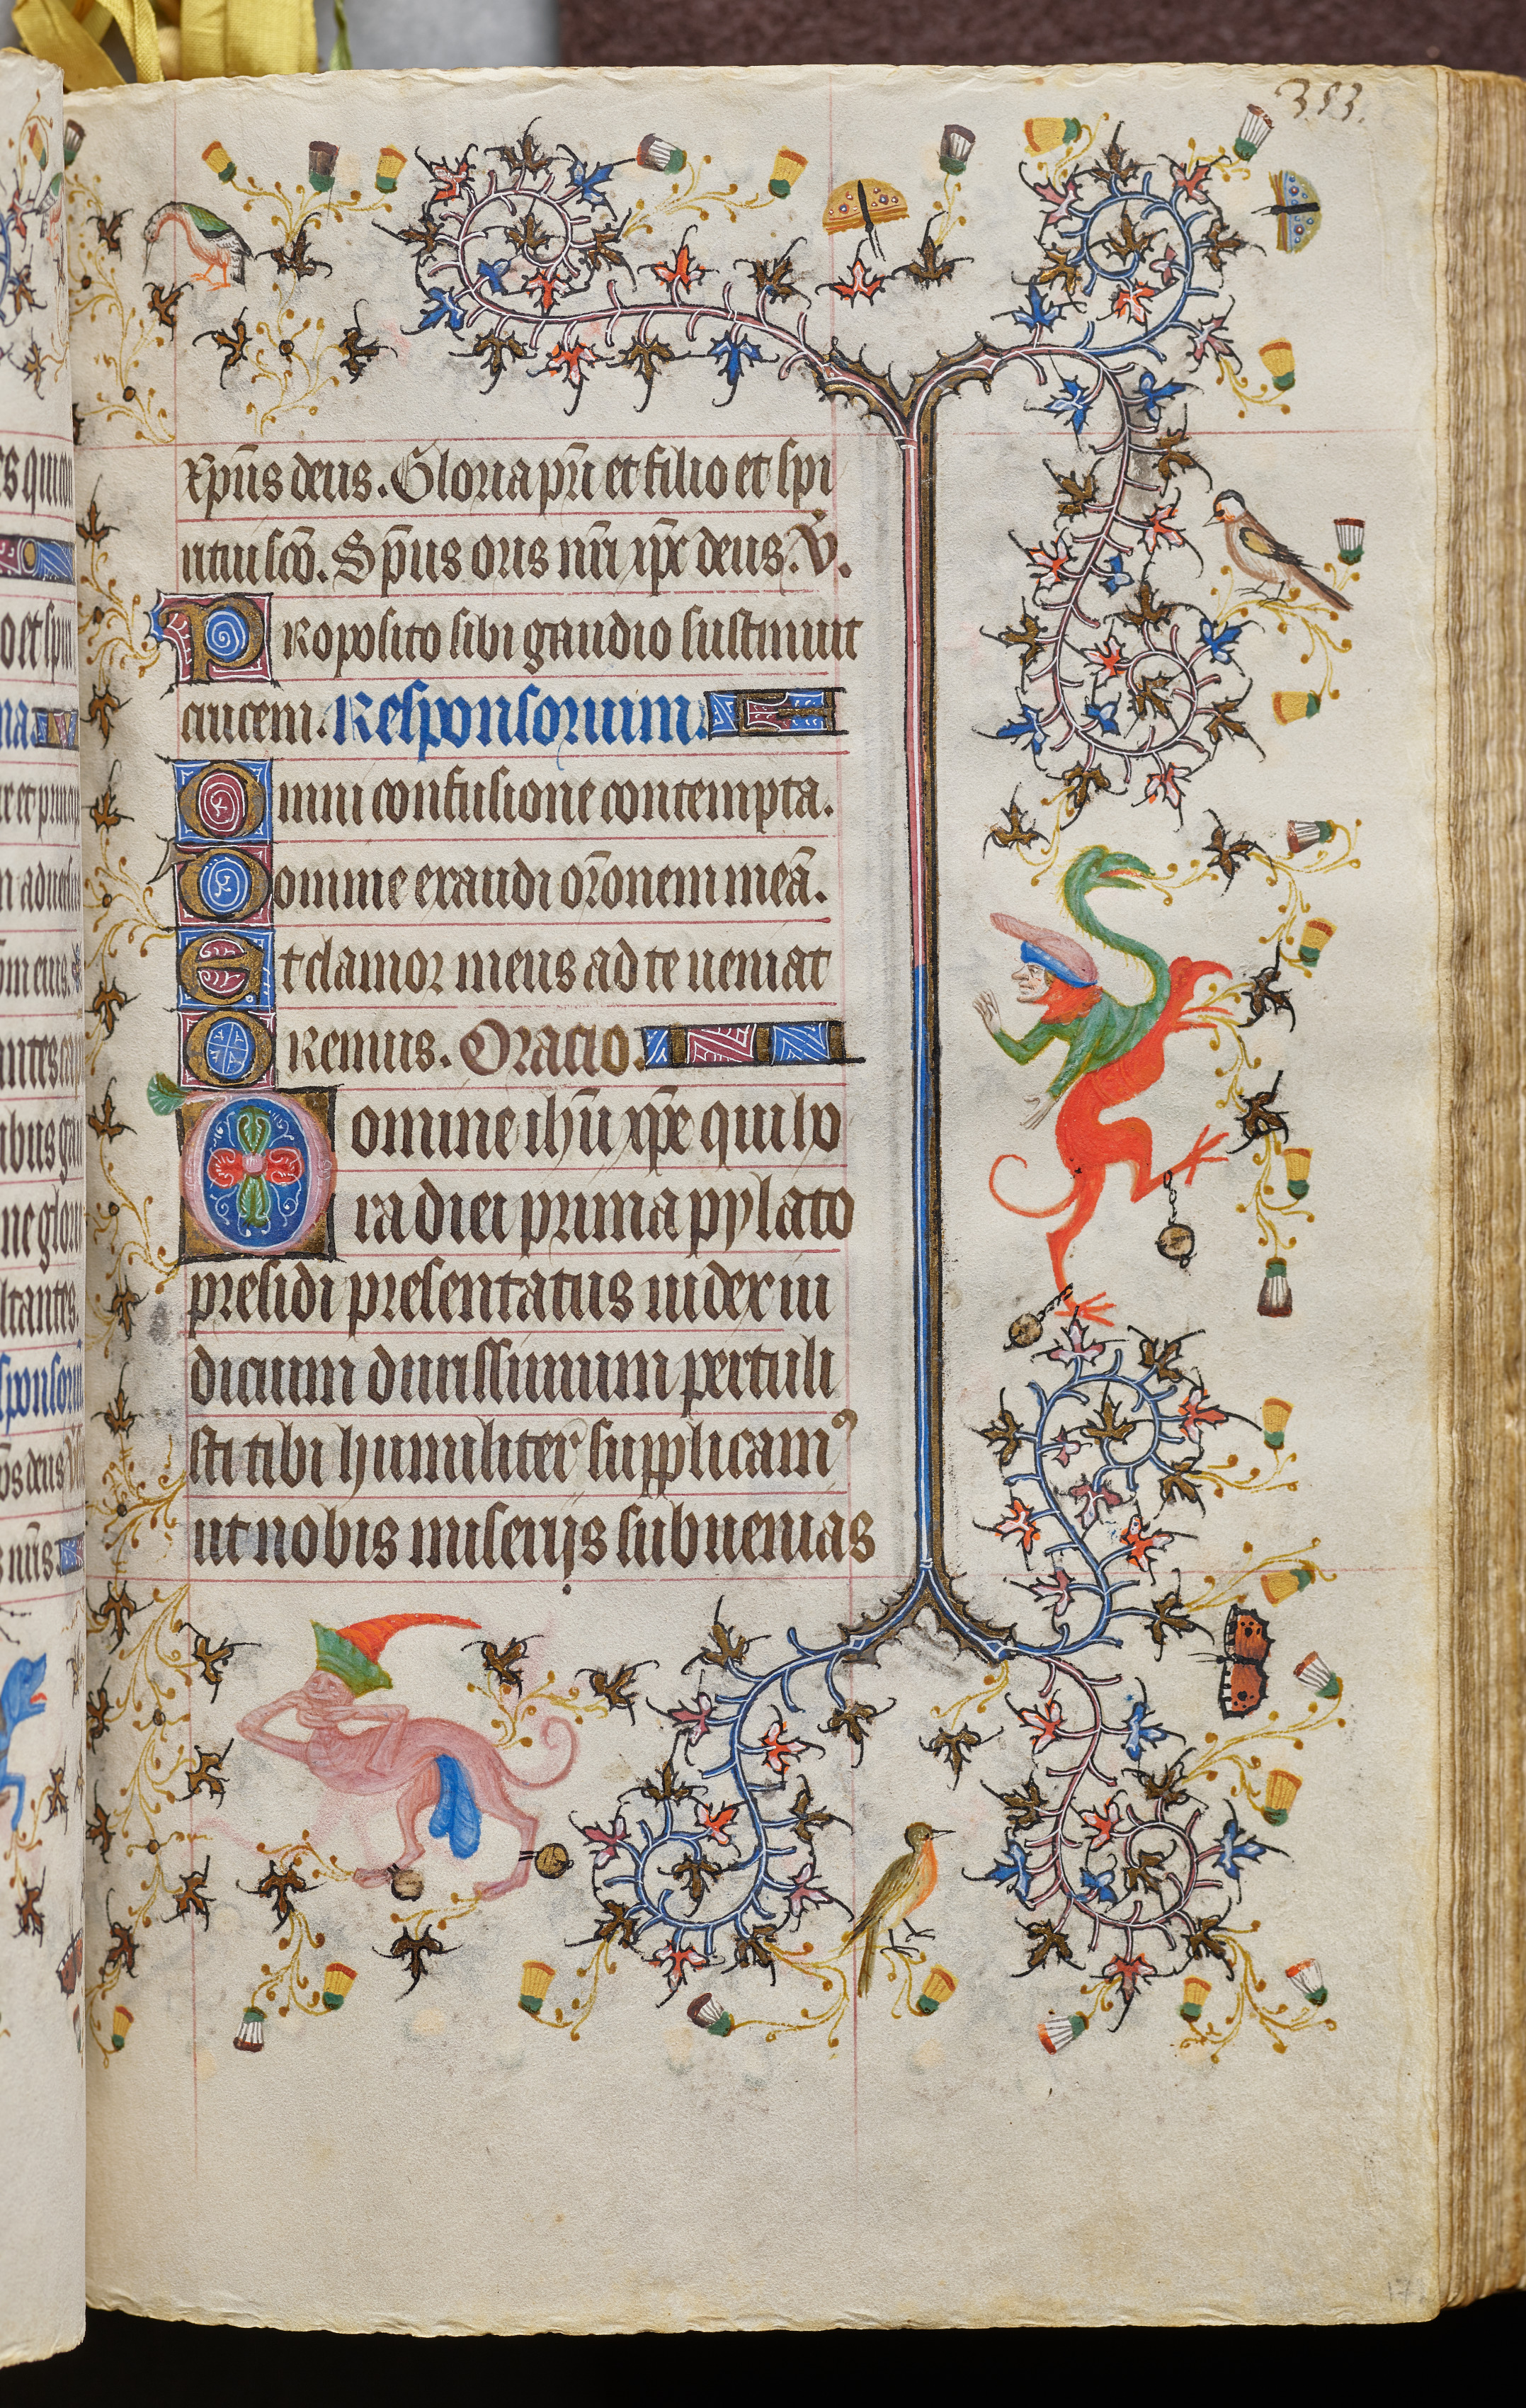 353.
xp̄us deus. Gloria pr̄i et filio et spi
ritui sc̄o. Sp̄us oris nr̄i xp̄c deus. V̄.
Proposito sibi gaudio sustinuit
crucem. Responsorium.
Omni confusione contempta.
Domine exaudi or̄onem meā.
Et clamor meus ad te ueniat
Oremus. Oracio.
Domine ih̄u xp̄e qui ho
ra diei prima pylato
presidi presentatus iudex iu
dicium durissimum pertuli
sti tibi humiliter supplicamꝰ
ut nobis miseriis subuenias